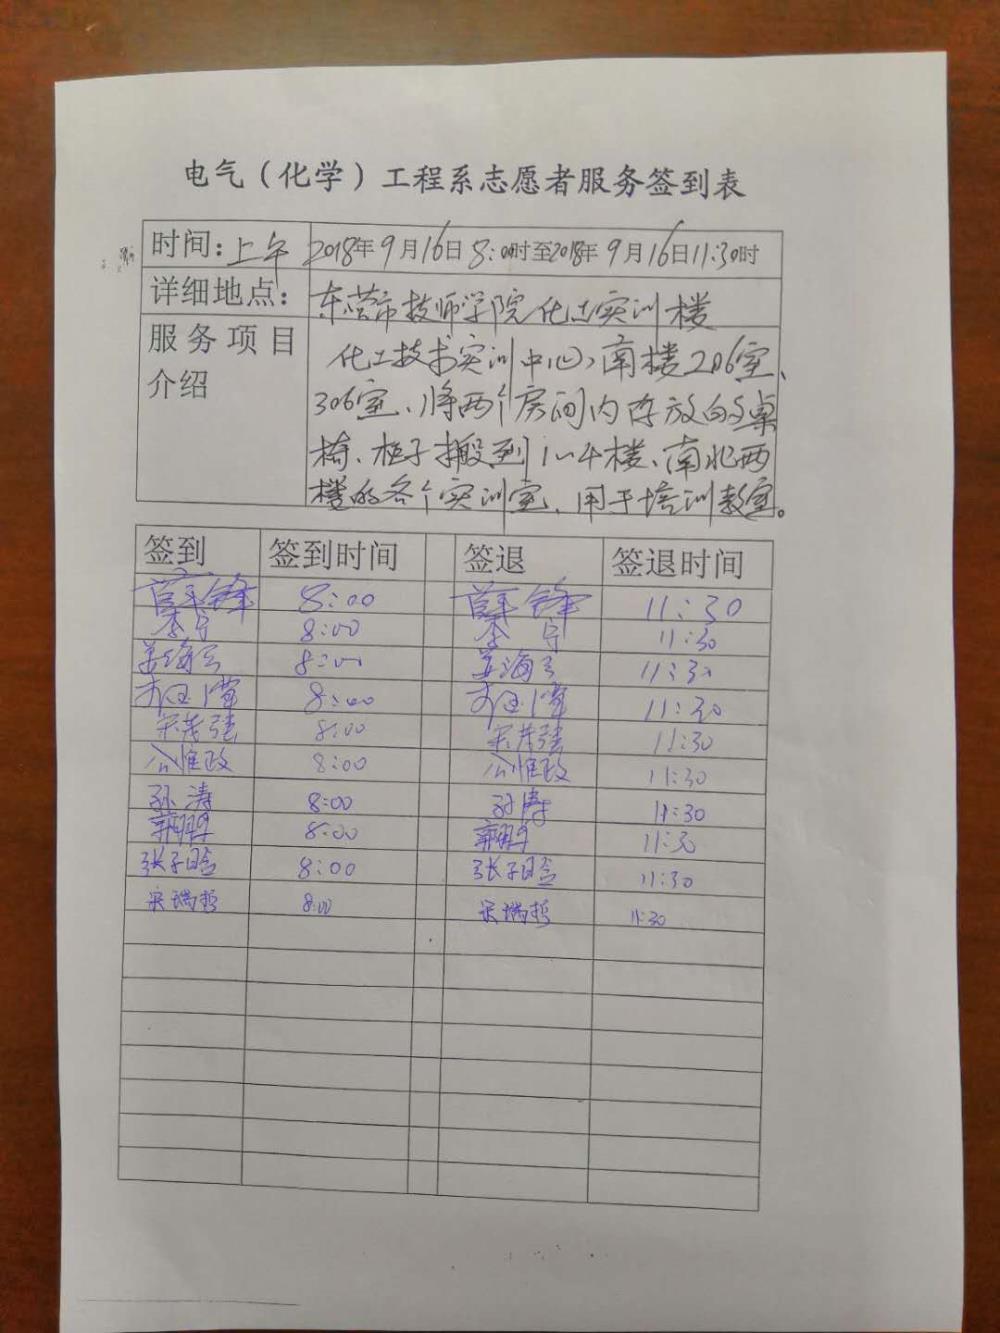 电气（化学）工程系志愿者服务签到表
时间：上午 2018年9月16日8:00时至2018年9月16日11:30时
详细地点： 东营市技师学院化工实训楼
服务项目介绍
化工技术实训中心，南楼206室、
306室、将两个房间内存放的桌
椅、柜子搬到1~4楼、南北两
楼的各个实训室、用于培训教室。
签到 签到时间 签退 签退时间
8:00 11:30
李宁 8:00 李宁 11:30
姜海云 8:00 姜海云 11:30
8:00 11:30
宋茂强 8:00 宋茂强 11:30
公惟政 8:00 公惟政 11:30
孙涛 8:00 孙涛 11:30
8:00 11:30
张子晗 8:00 张子晗 11:30
宋瑞哲 8:00 宋瑞哲 11:30